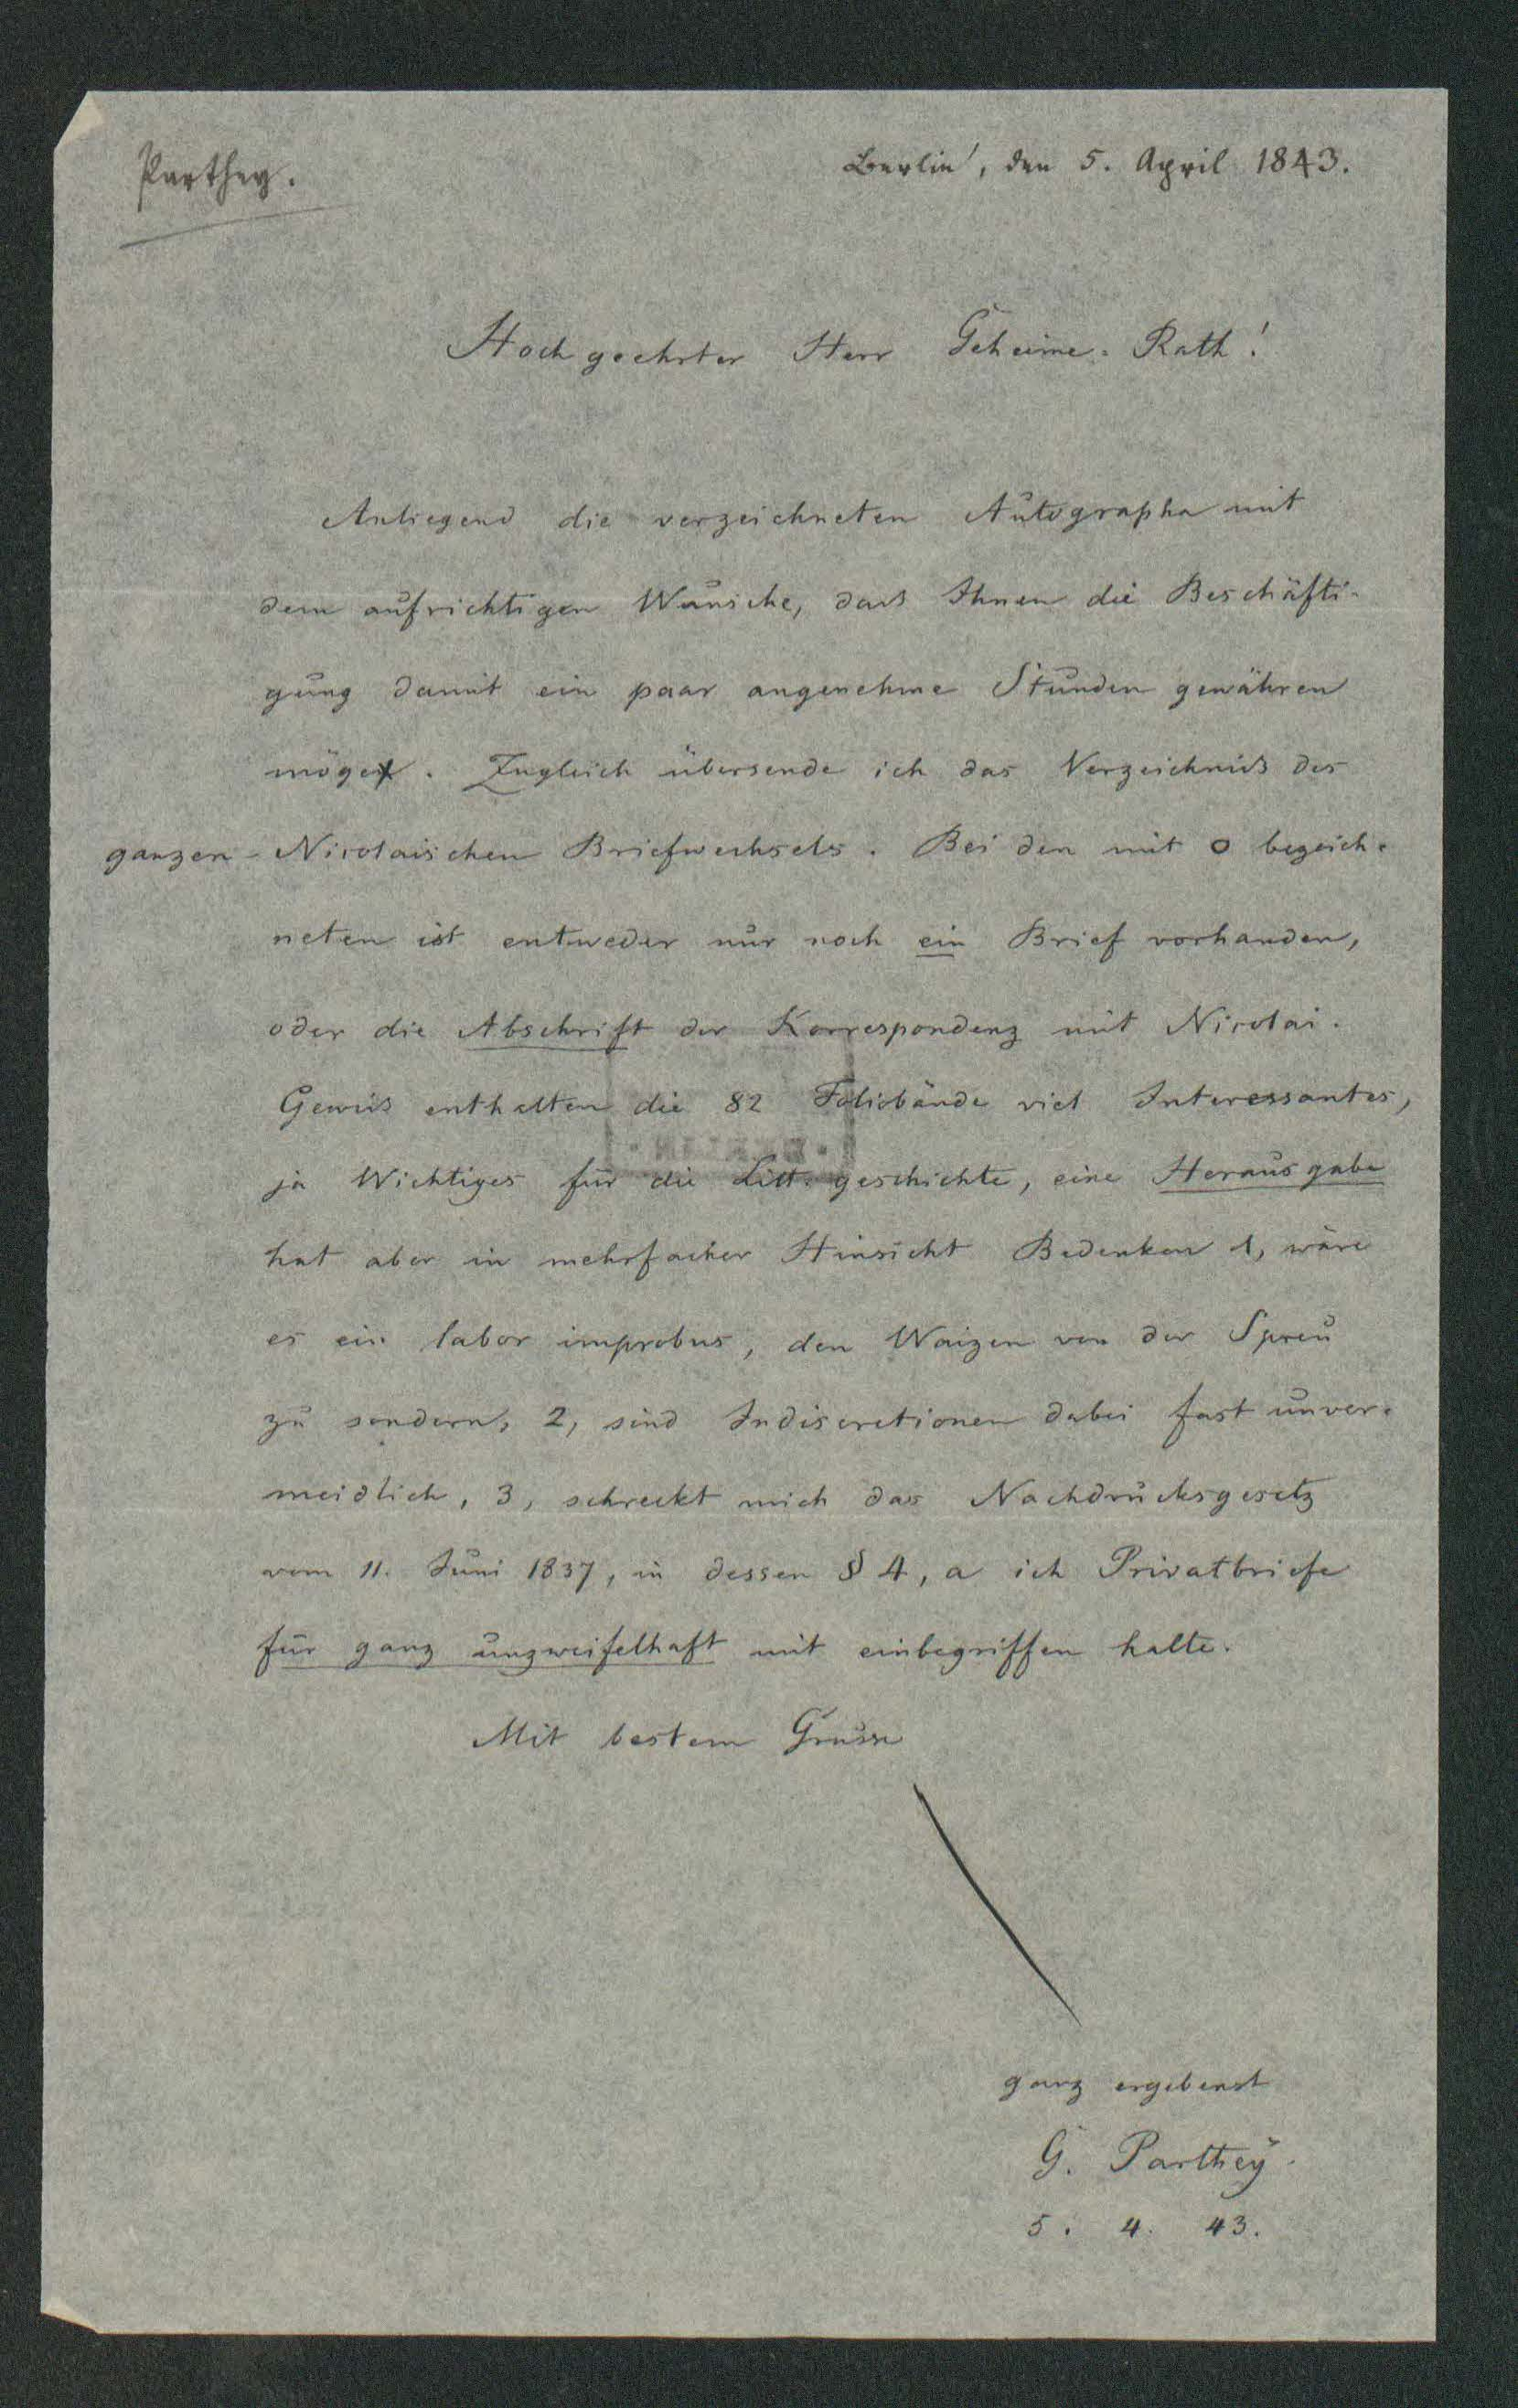 Parthey.
Berlin, den 5. April 1843.
Hochgeehrter Herr Geheime-Rath!
Anliegend die verzeichneten Autographa mit
dem aufrichtigen Wunsche, daß Ihnen die Beschäfti-
gung damit ein paar angenehme Stunden gewähren
möge. Zugleich übersende ich das Verzeichniß des
ganzen Nicolaischen Briefwechsels. Bei den mit o bezeich-
neten ist entweder nur noch ein Brief vorhanden,
oder die Abschrift der Korrespondenz mit Nicolai.
Gewiß enthalten die 82 Foliobände viel Interessantes,
ja Wichtiges für die Litt. geschichte, eine Herausgabe
hat aber in mehrfacher Hinsicht Bedenken 1, wäre
es ein labor improbus, den Waizen von der Spreu
zu sondern, 2, sind Indiscretionen dabei fast unver-
meidlich, 3, schreckt mich das Nachdrucksgesetz
vom 11. Juni 1837, in dessen § 4, a ich Privatbriefe
für ganz unzweifelhaft mit einbegriffen halte.
Mit bestem Grusse
ganz ergebenst
G. Parthey.
5. 4. 43.